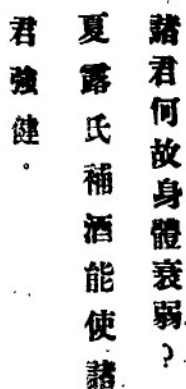 諸君何故身體衰弱？
夏露氏補酒能使諸
君強健。